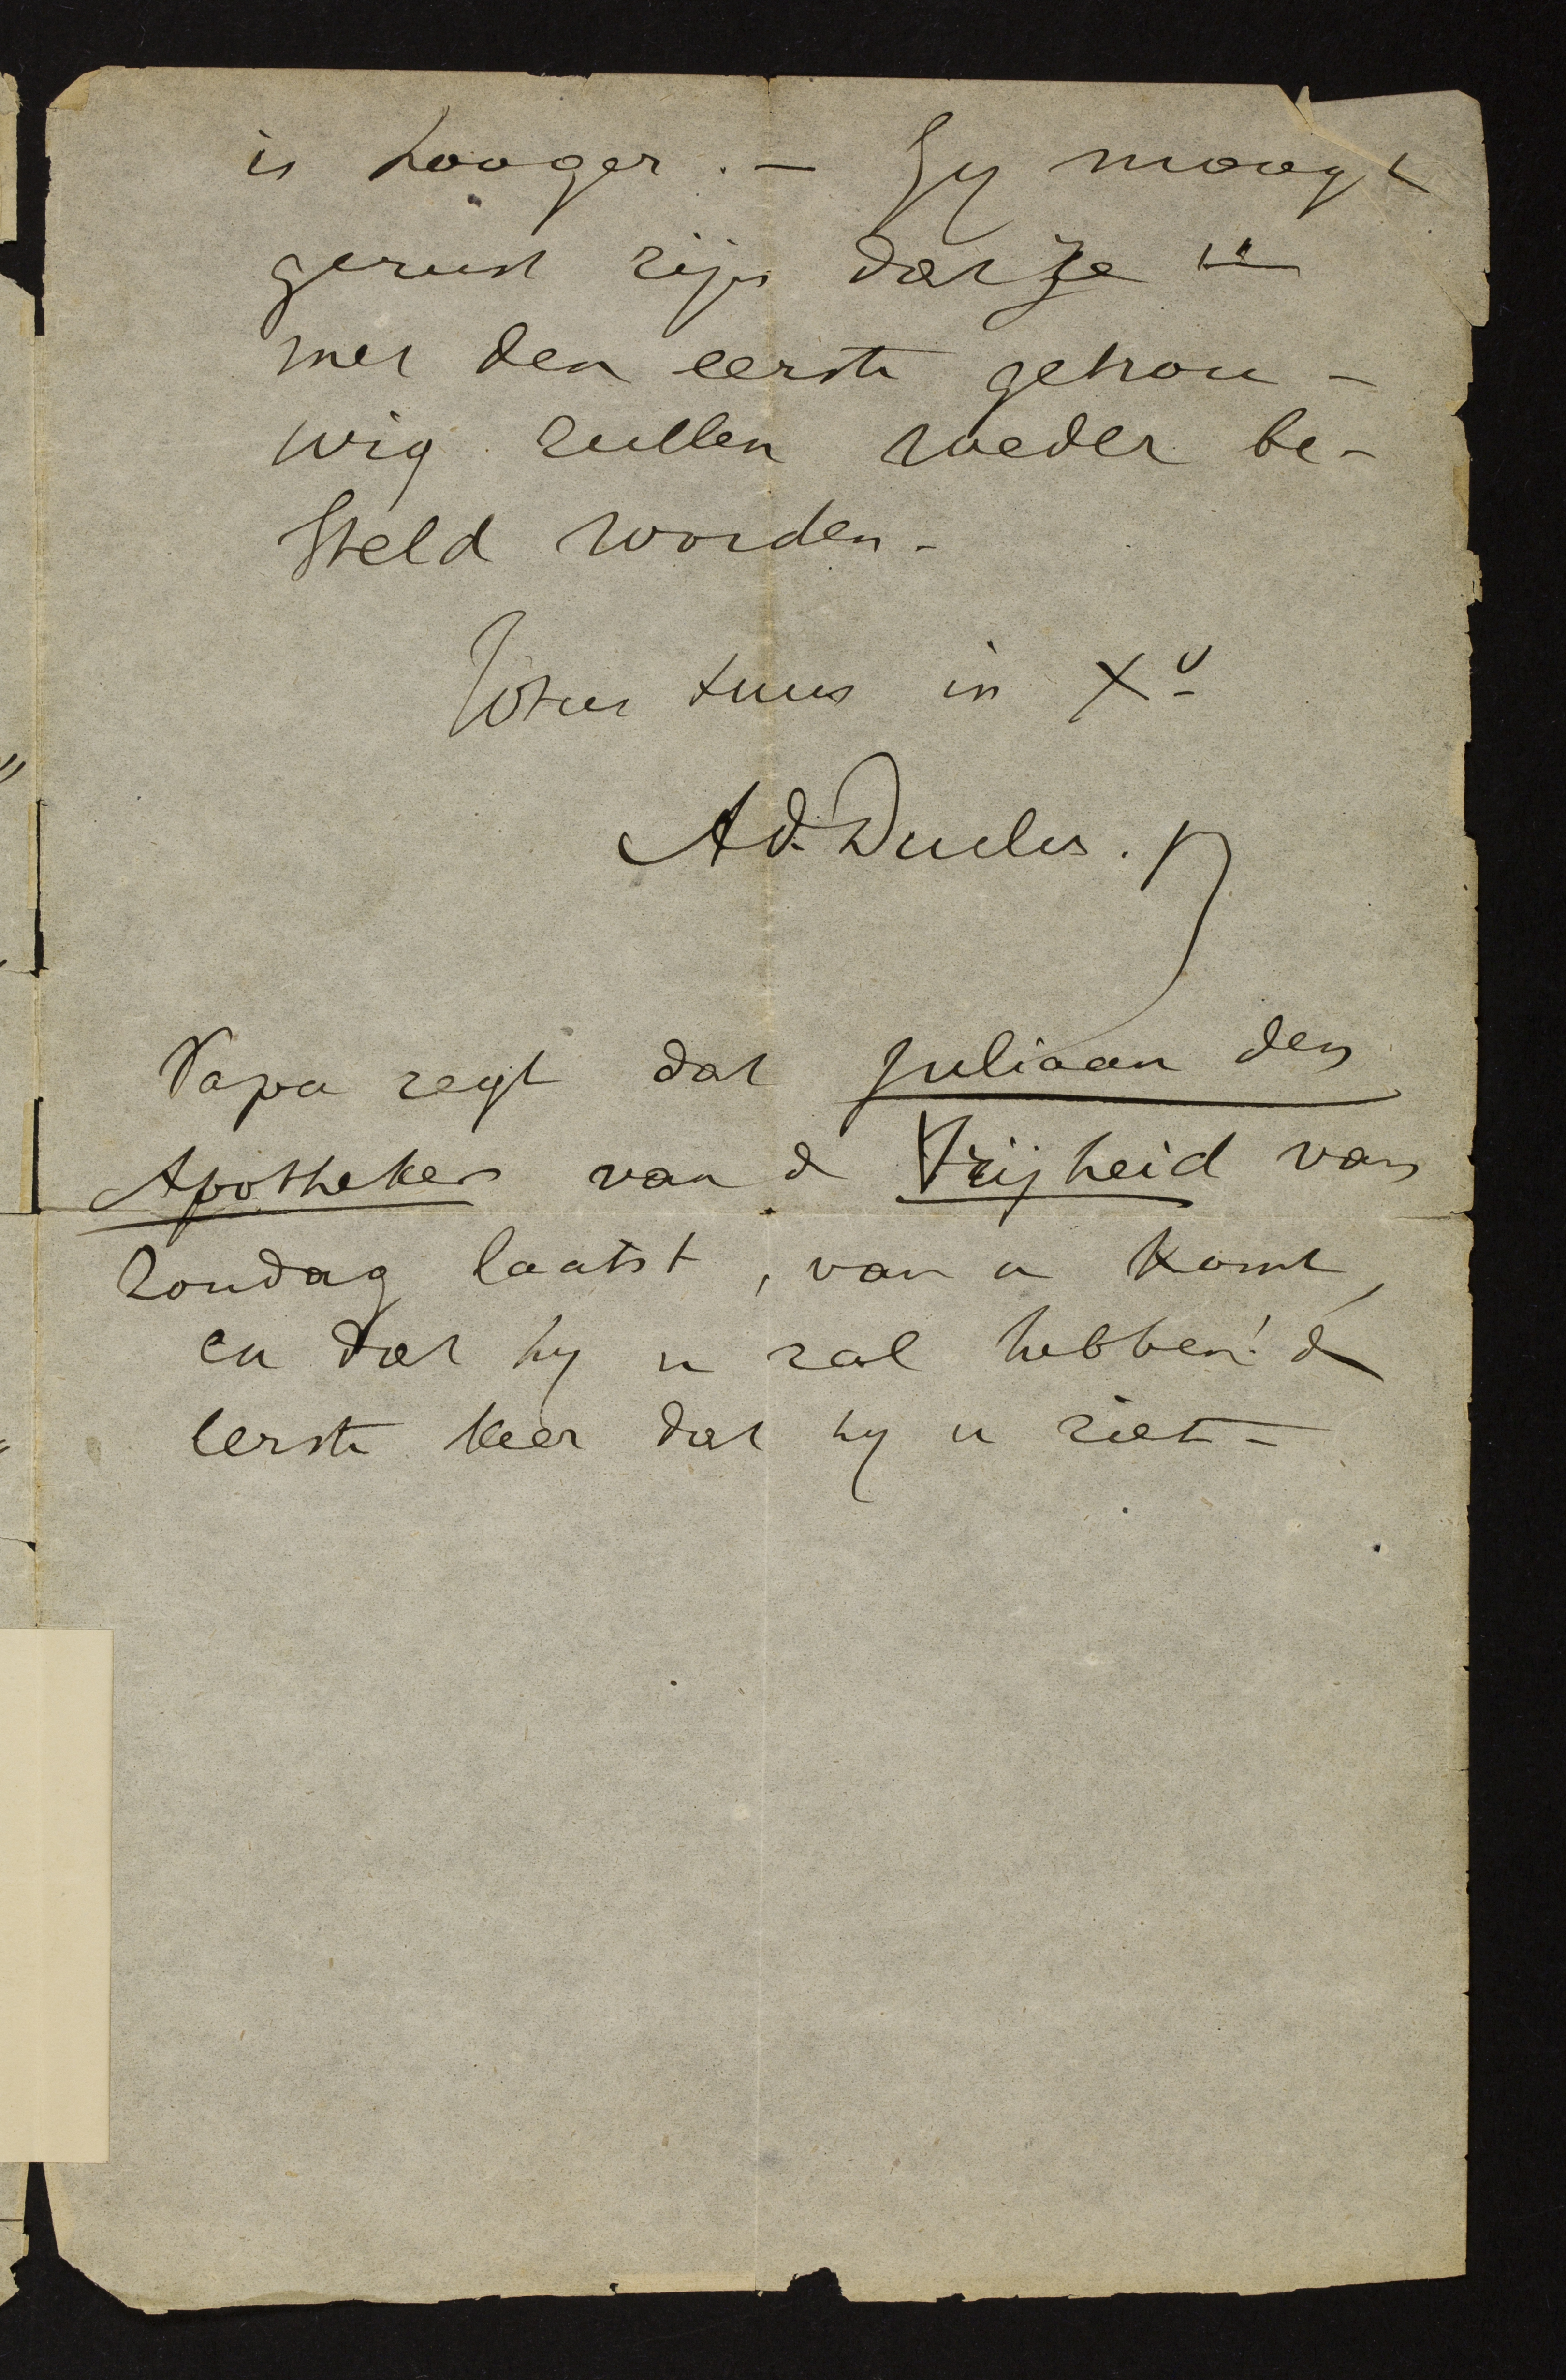 is hooger. - Gy moogt
gerust zijn dat ze u
met den eerste getrou-
wig zullen weder be-
steld worden -
Totus tuus in Xº
Ad. Duclos. p
Papa zegt dat Juliaan den
Apotheker van de Vrijheid van
Zondag laatst, van u komt,
en dat hy u zal hebben! de
eerste keer dat hy u ziet -